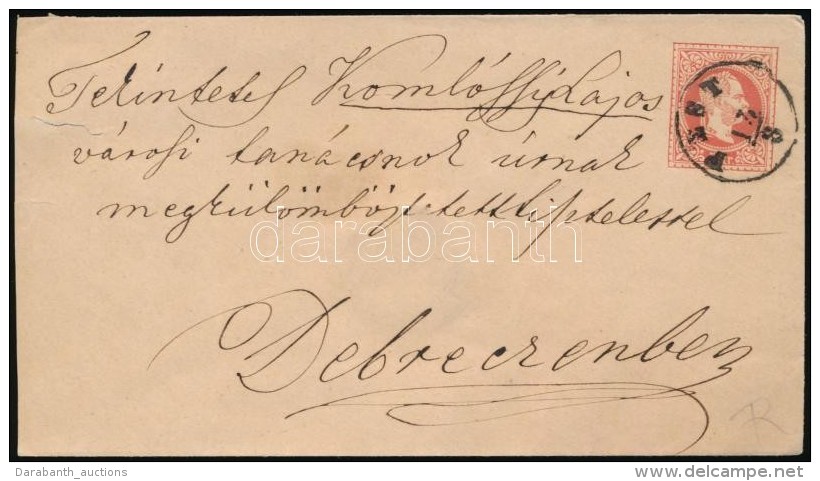 Tekintetes Komlóssy Lajos
városi tanácsnok úrnak
megkülömböztetett tisztelettel
Debreczenben
PEST
darabanth
Darabanth_auctions
www.delcampe.net